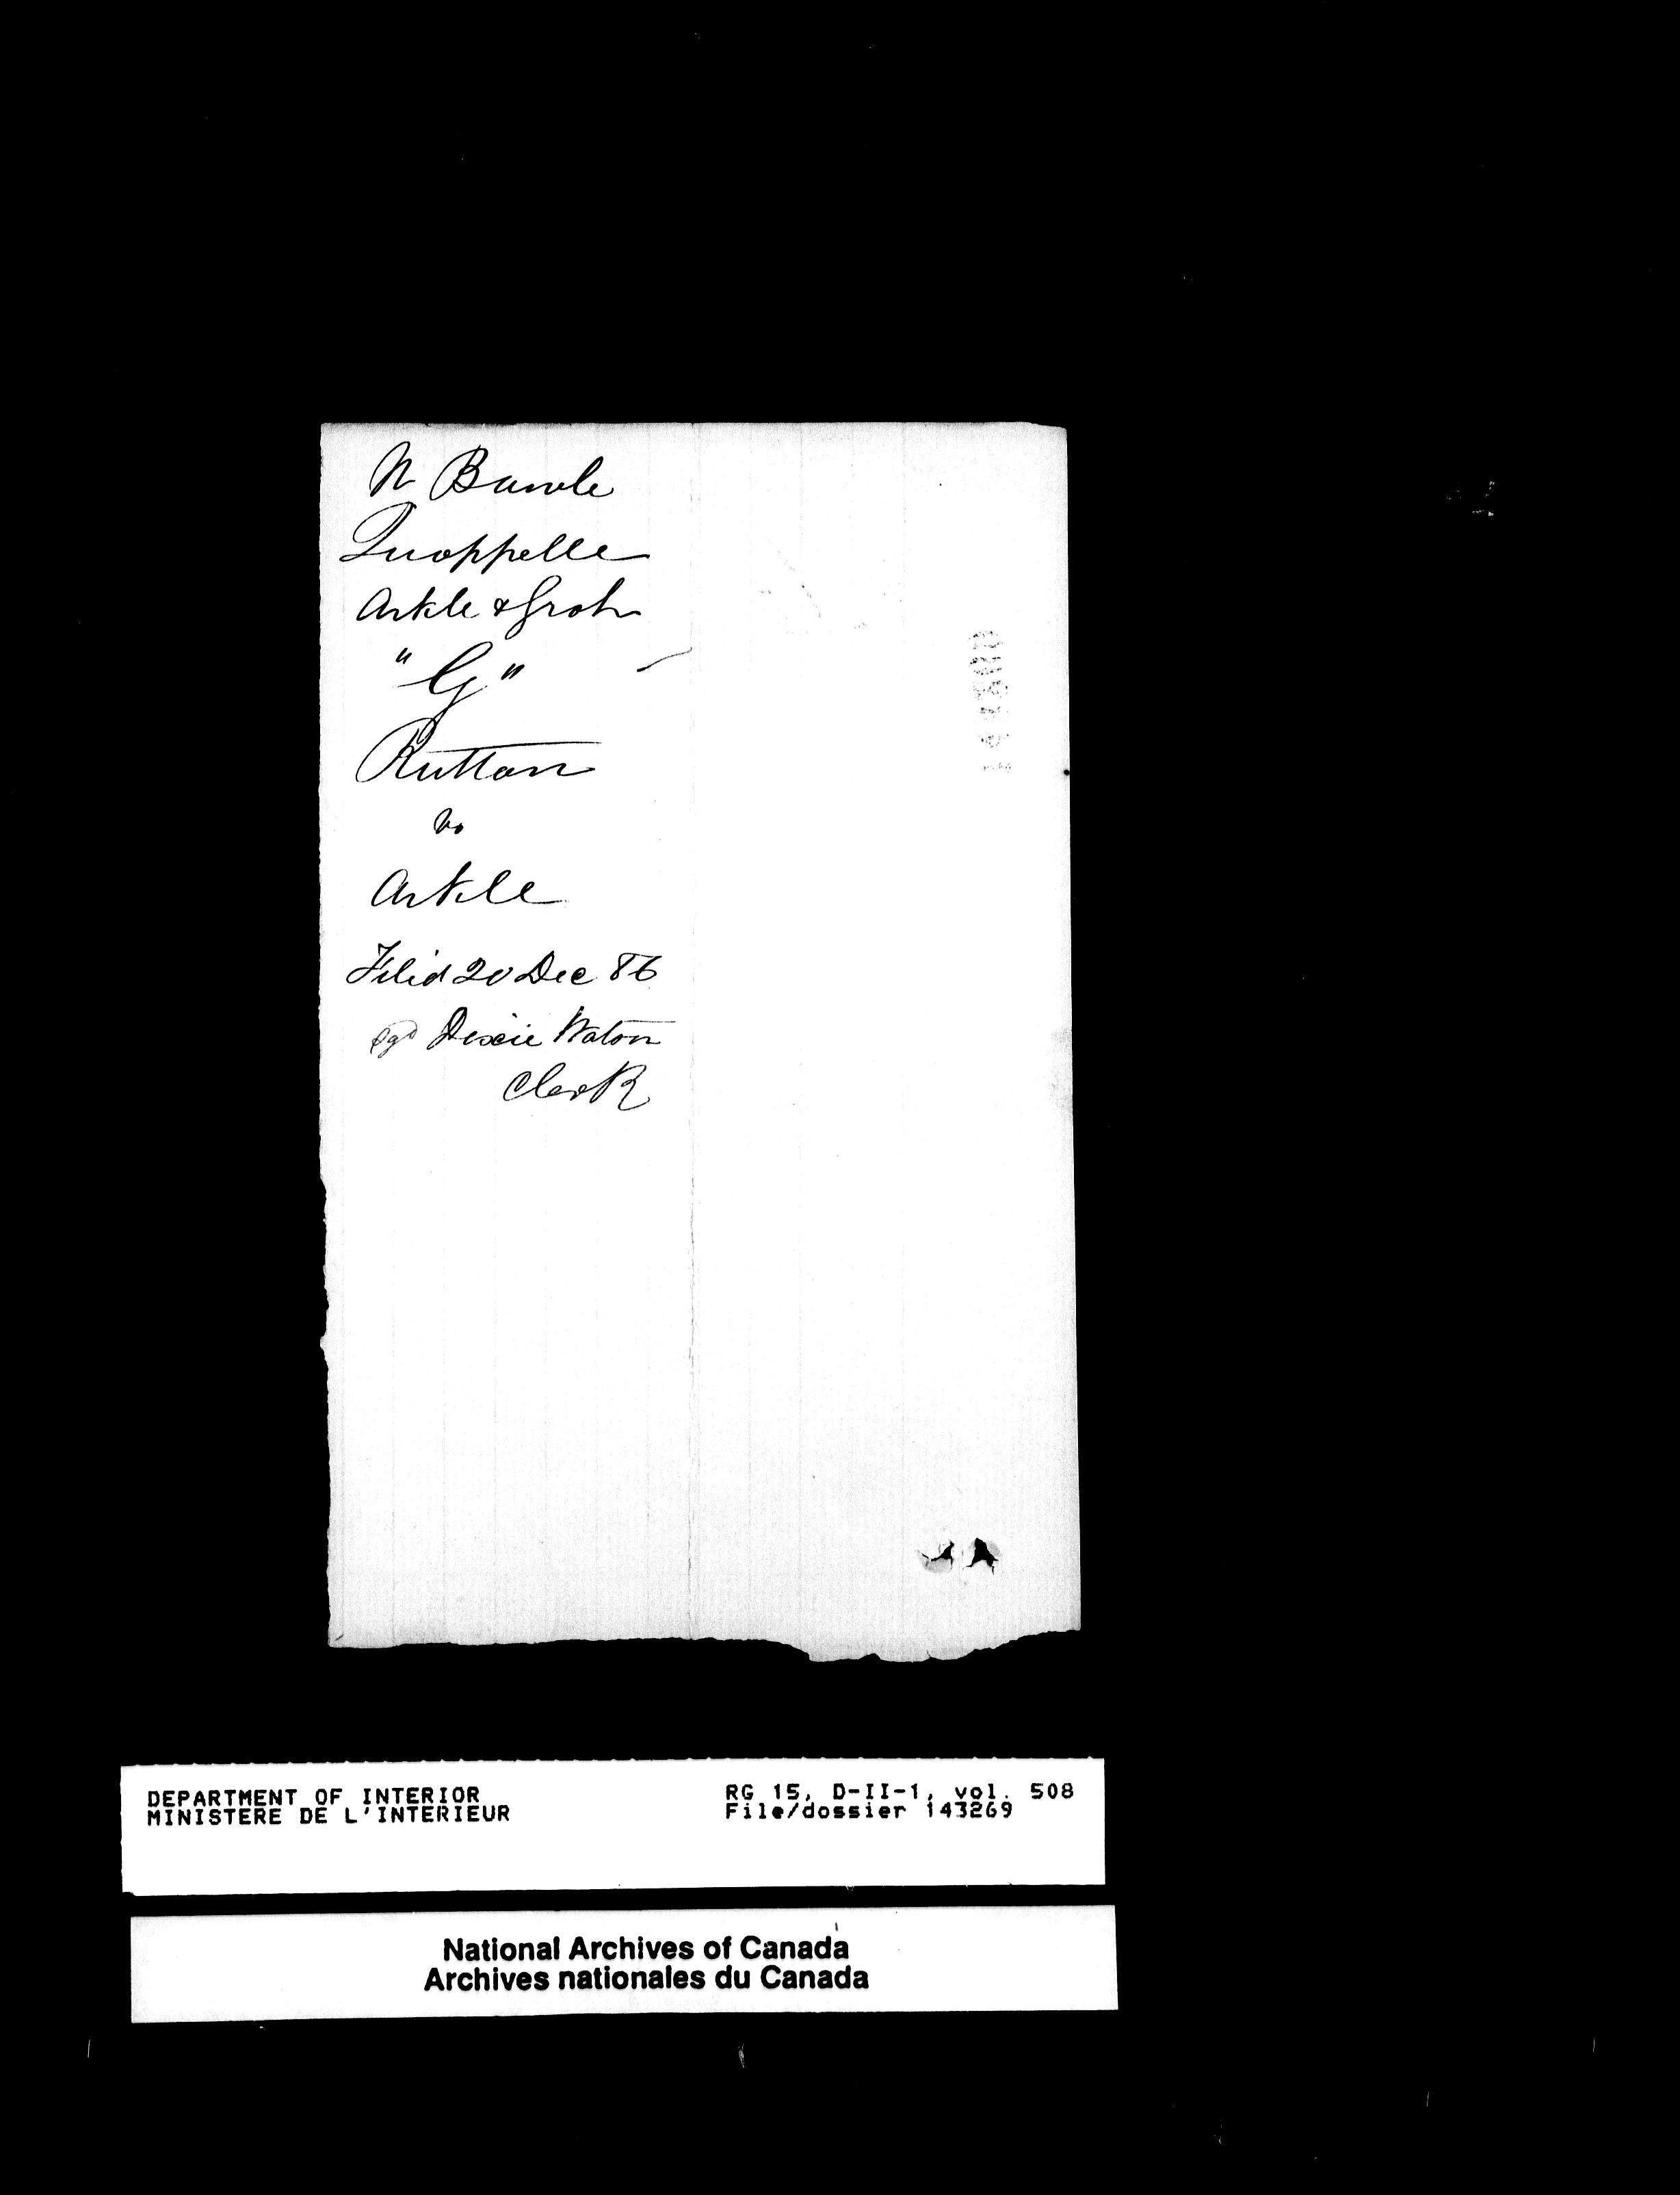 Quoppelle
Arkle & Groh
"G"
Ruttan
vs
Arkle
Filed 20 Dec 86
sgd Dixie Watson
Clerk
DEPARTMENT OF INTERIOR
MINISTERE DE L'INTERIEUR
RG 15, D-II-1, vol. 508
File/dossier 143269
National Archives of Canada
Archives nationales du Canada